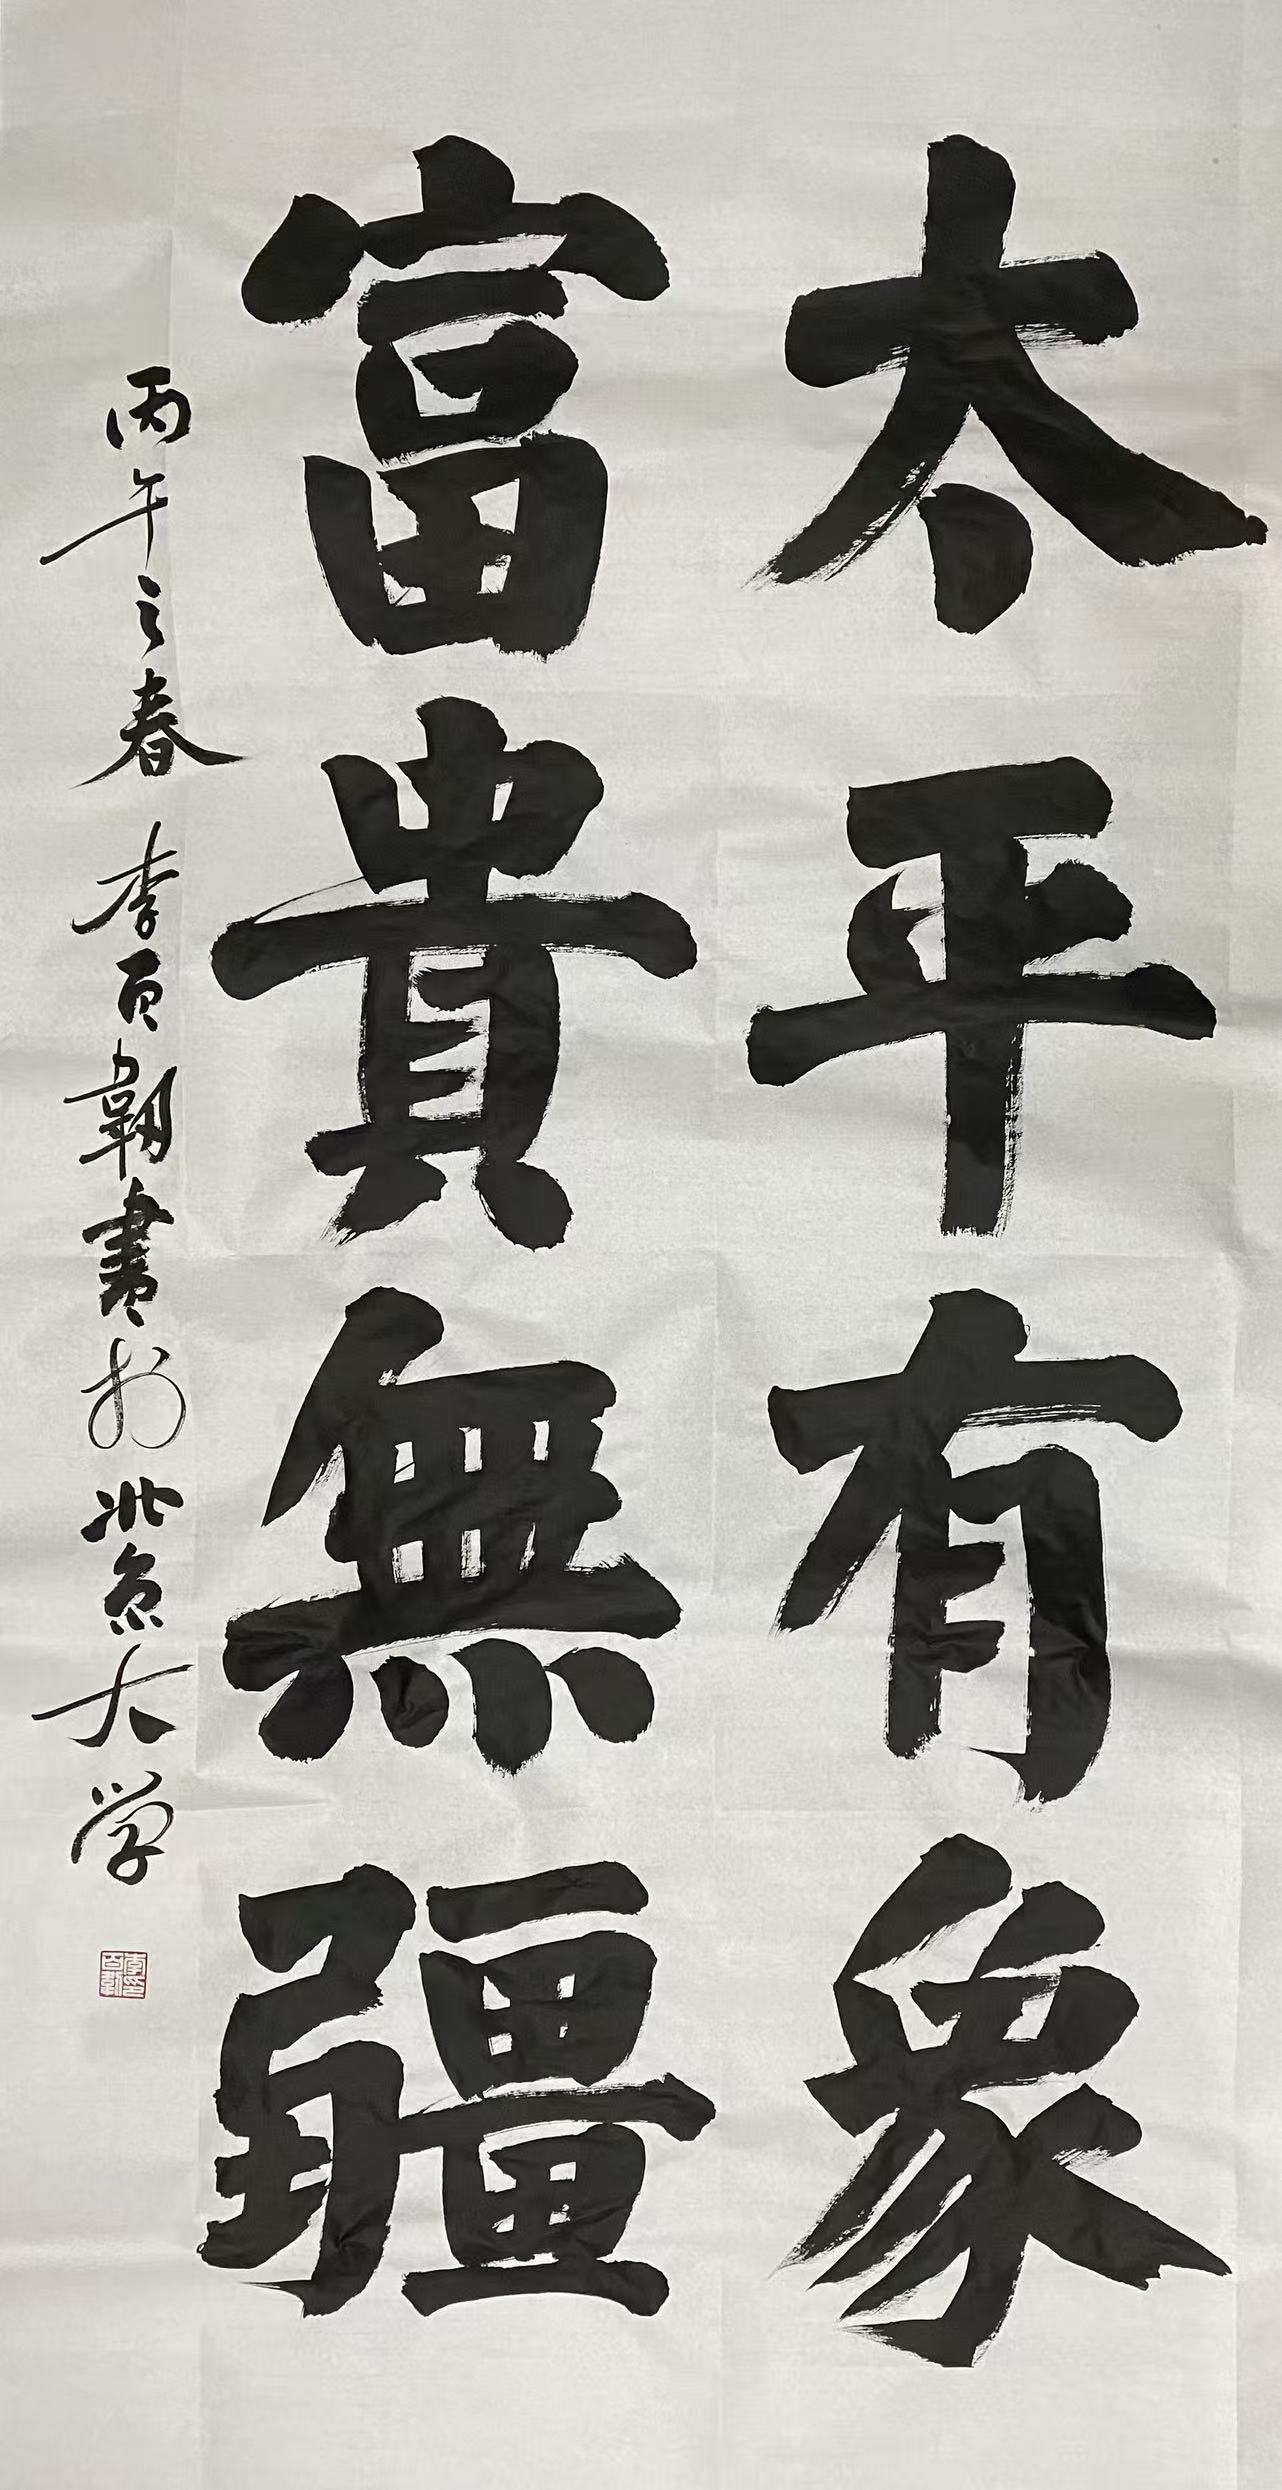 太平有象
富貴無疆
丙午之春 李百韌書於北京大学